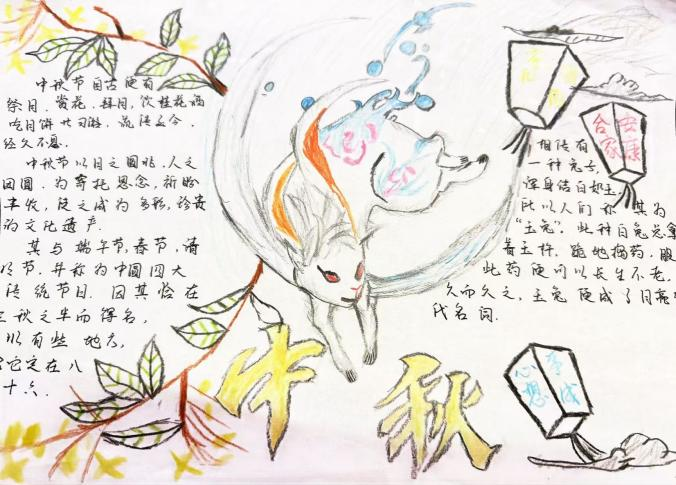 中秋节自古便有
祭月、赏花、拜月、饮桂花酒
吃月饼
流传至今,
经久不息.
中秋节以月之圆兆人之
团圆,为寄托思念,祈盼
丰收,
成为多彩,珍贵
的文化遗产.
其与端午节,春节,清
明节,并称为中国四大
传统节日.因其恰在
三秋之半而得名,
以有些地方,
它定在八
十六.
中秋
阖家
安康
相传有
一种兔子,
浑身洁白如玉,
所以人们称其为
“玉兔”.此种白兔总拿
着玉杵,跪地捣药,服
此药便可以长生不老.
久而久之,玉兔便成了月亮的
代名词.
心想
事成